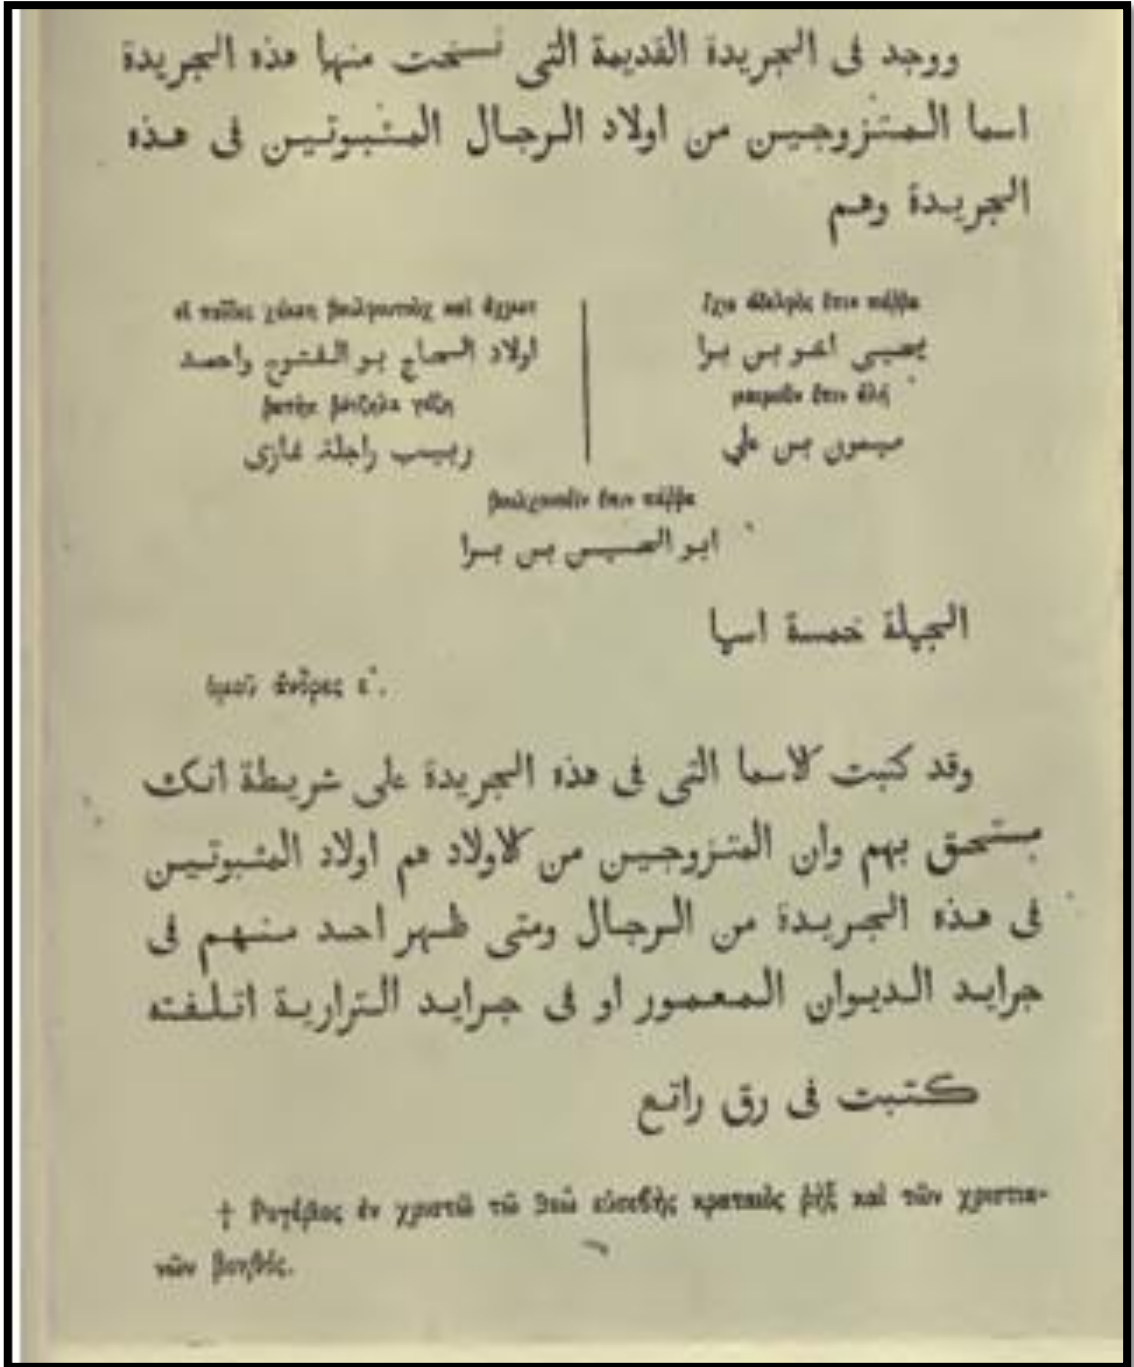 ووجد فى الجريدة القديمة التى نسخت منها هذه الجريدة
اسما المتزوجين من اولاد الرجال المثبوتين فى هذه
الجريدة وهم
ἔχιε ἀδελφὸς ἔπιν πάῤῥα
يحيى اخو بن برا
μαιμοῦν ἔπιν ἀλή
ميمون بن علي
οἱ παῖδες χάκκη βουλφουτούχ καὶ ἄχμετ
اولاد الحاج بو الفتوح واحمد
γάζη
ربيب راجلة غازى
ἔπιν πάῤῥα
ابو الحسين بن برا
الجملة خمسة اسما
ὁμοῦ ἄνδρες ε΄.
وقد كتبت الاسما التى فى هذه الجريدة على شريطة انك
مستحق بهم وان المتزوجين من الاولاد هم اولاد المثبوتين
فى هذه الجريدة من الرجال ومتى ظهر احد منهم فى
جرايد الديوان المعمور او فى جرايد الترارية اتلفته
كتبت فى رق راتع
† Ρογέριος ἐν χριστῷ τῷ θεῷ εὐσεβὴς κραταιὸς ῥὴξ καὶ τῶν χριστια-
νῶν βοηθός.